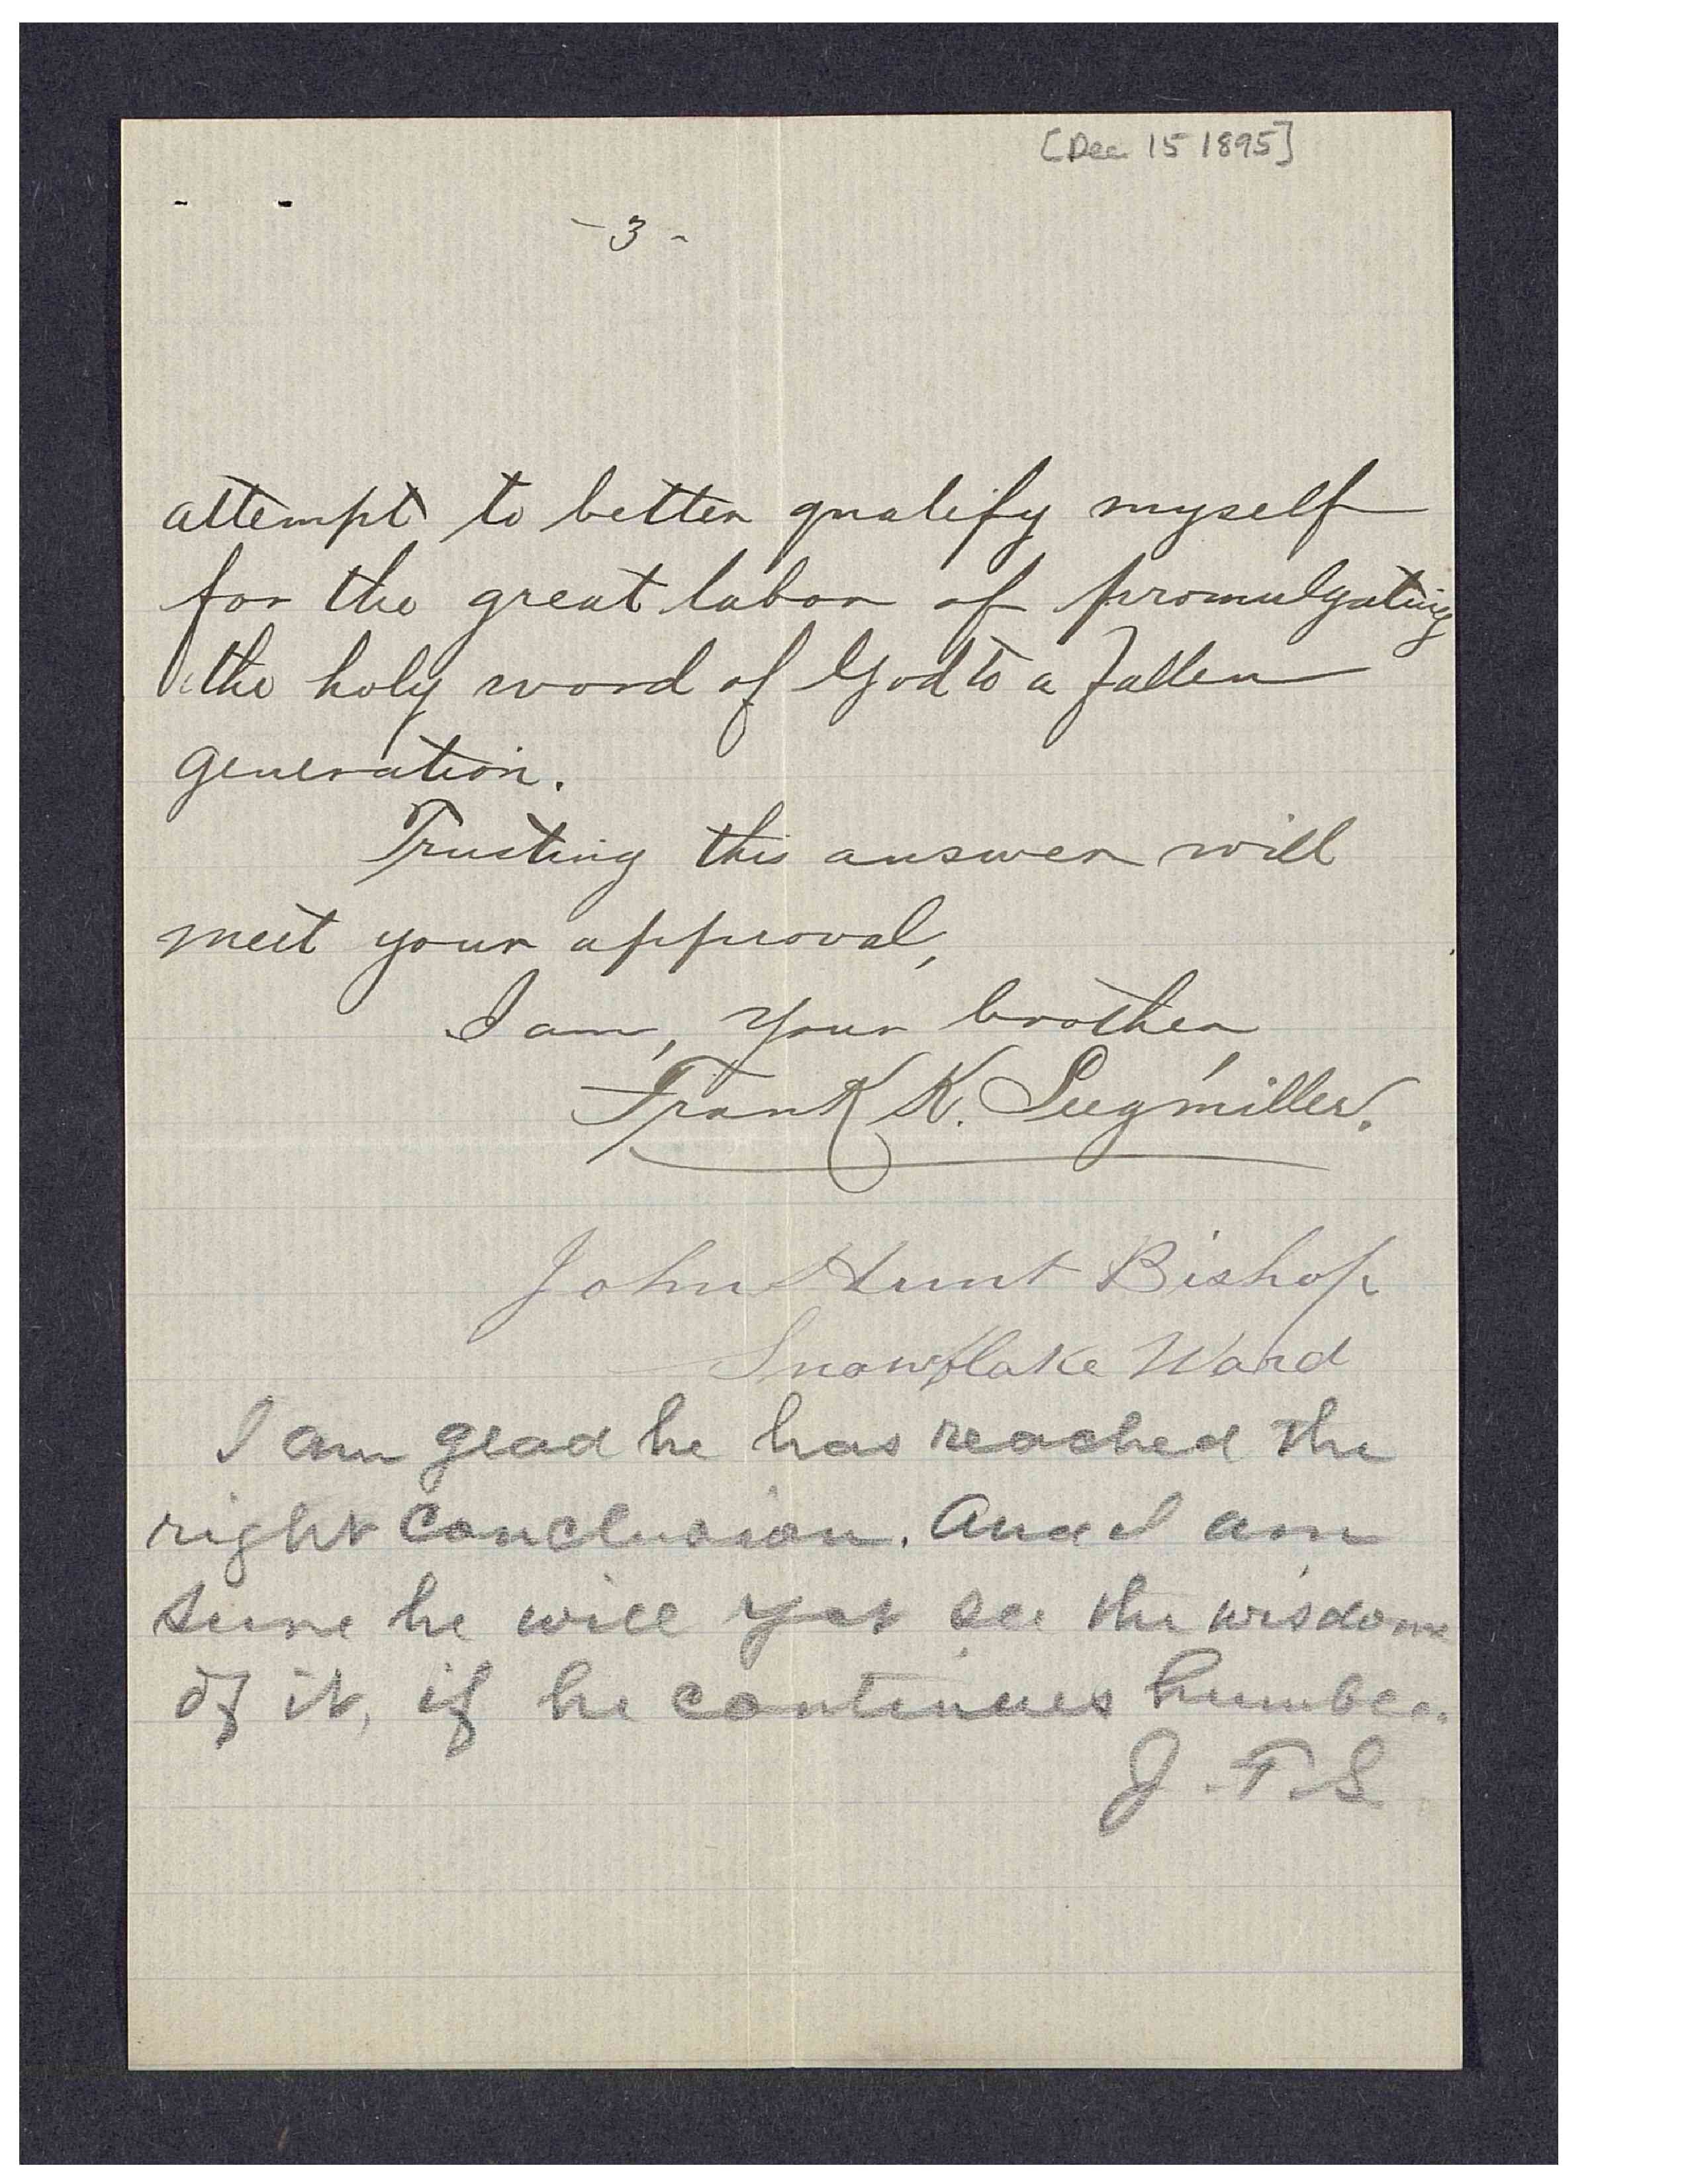 [Dec 15 1895]
- 3 -
attempt to better qualify myself
for the great labor of promulgating
the holy word of God to a fallen
generation.
Trusting this answer will
meet your approval,
I am, your brother,
Frank K. Seegmiller.
John Hunt Bishop
Snowflake Ward
I am glad he has reached the
right conclusion. And I am
sure he will yet see the wisdom
of it, if he continues humble.
J.F.S.